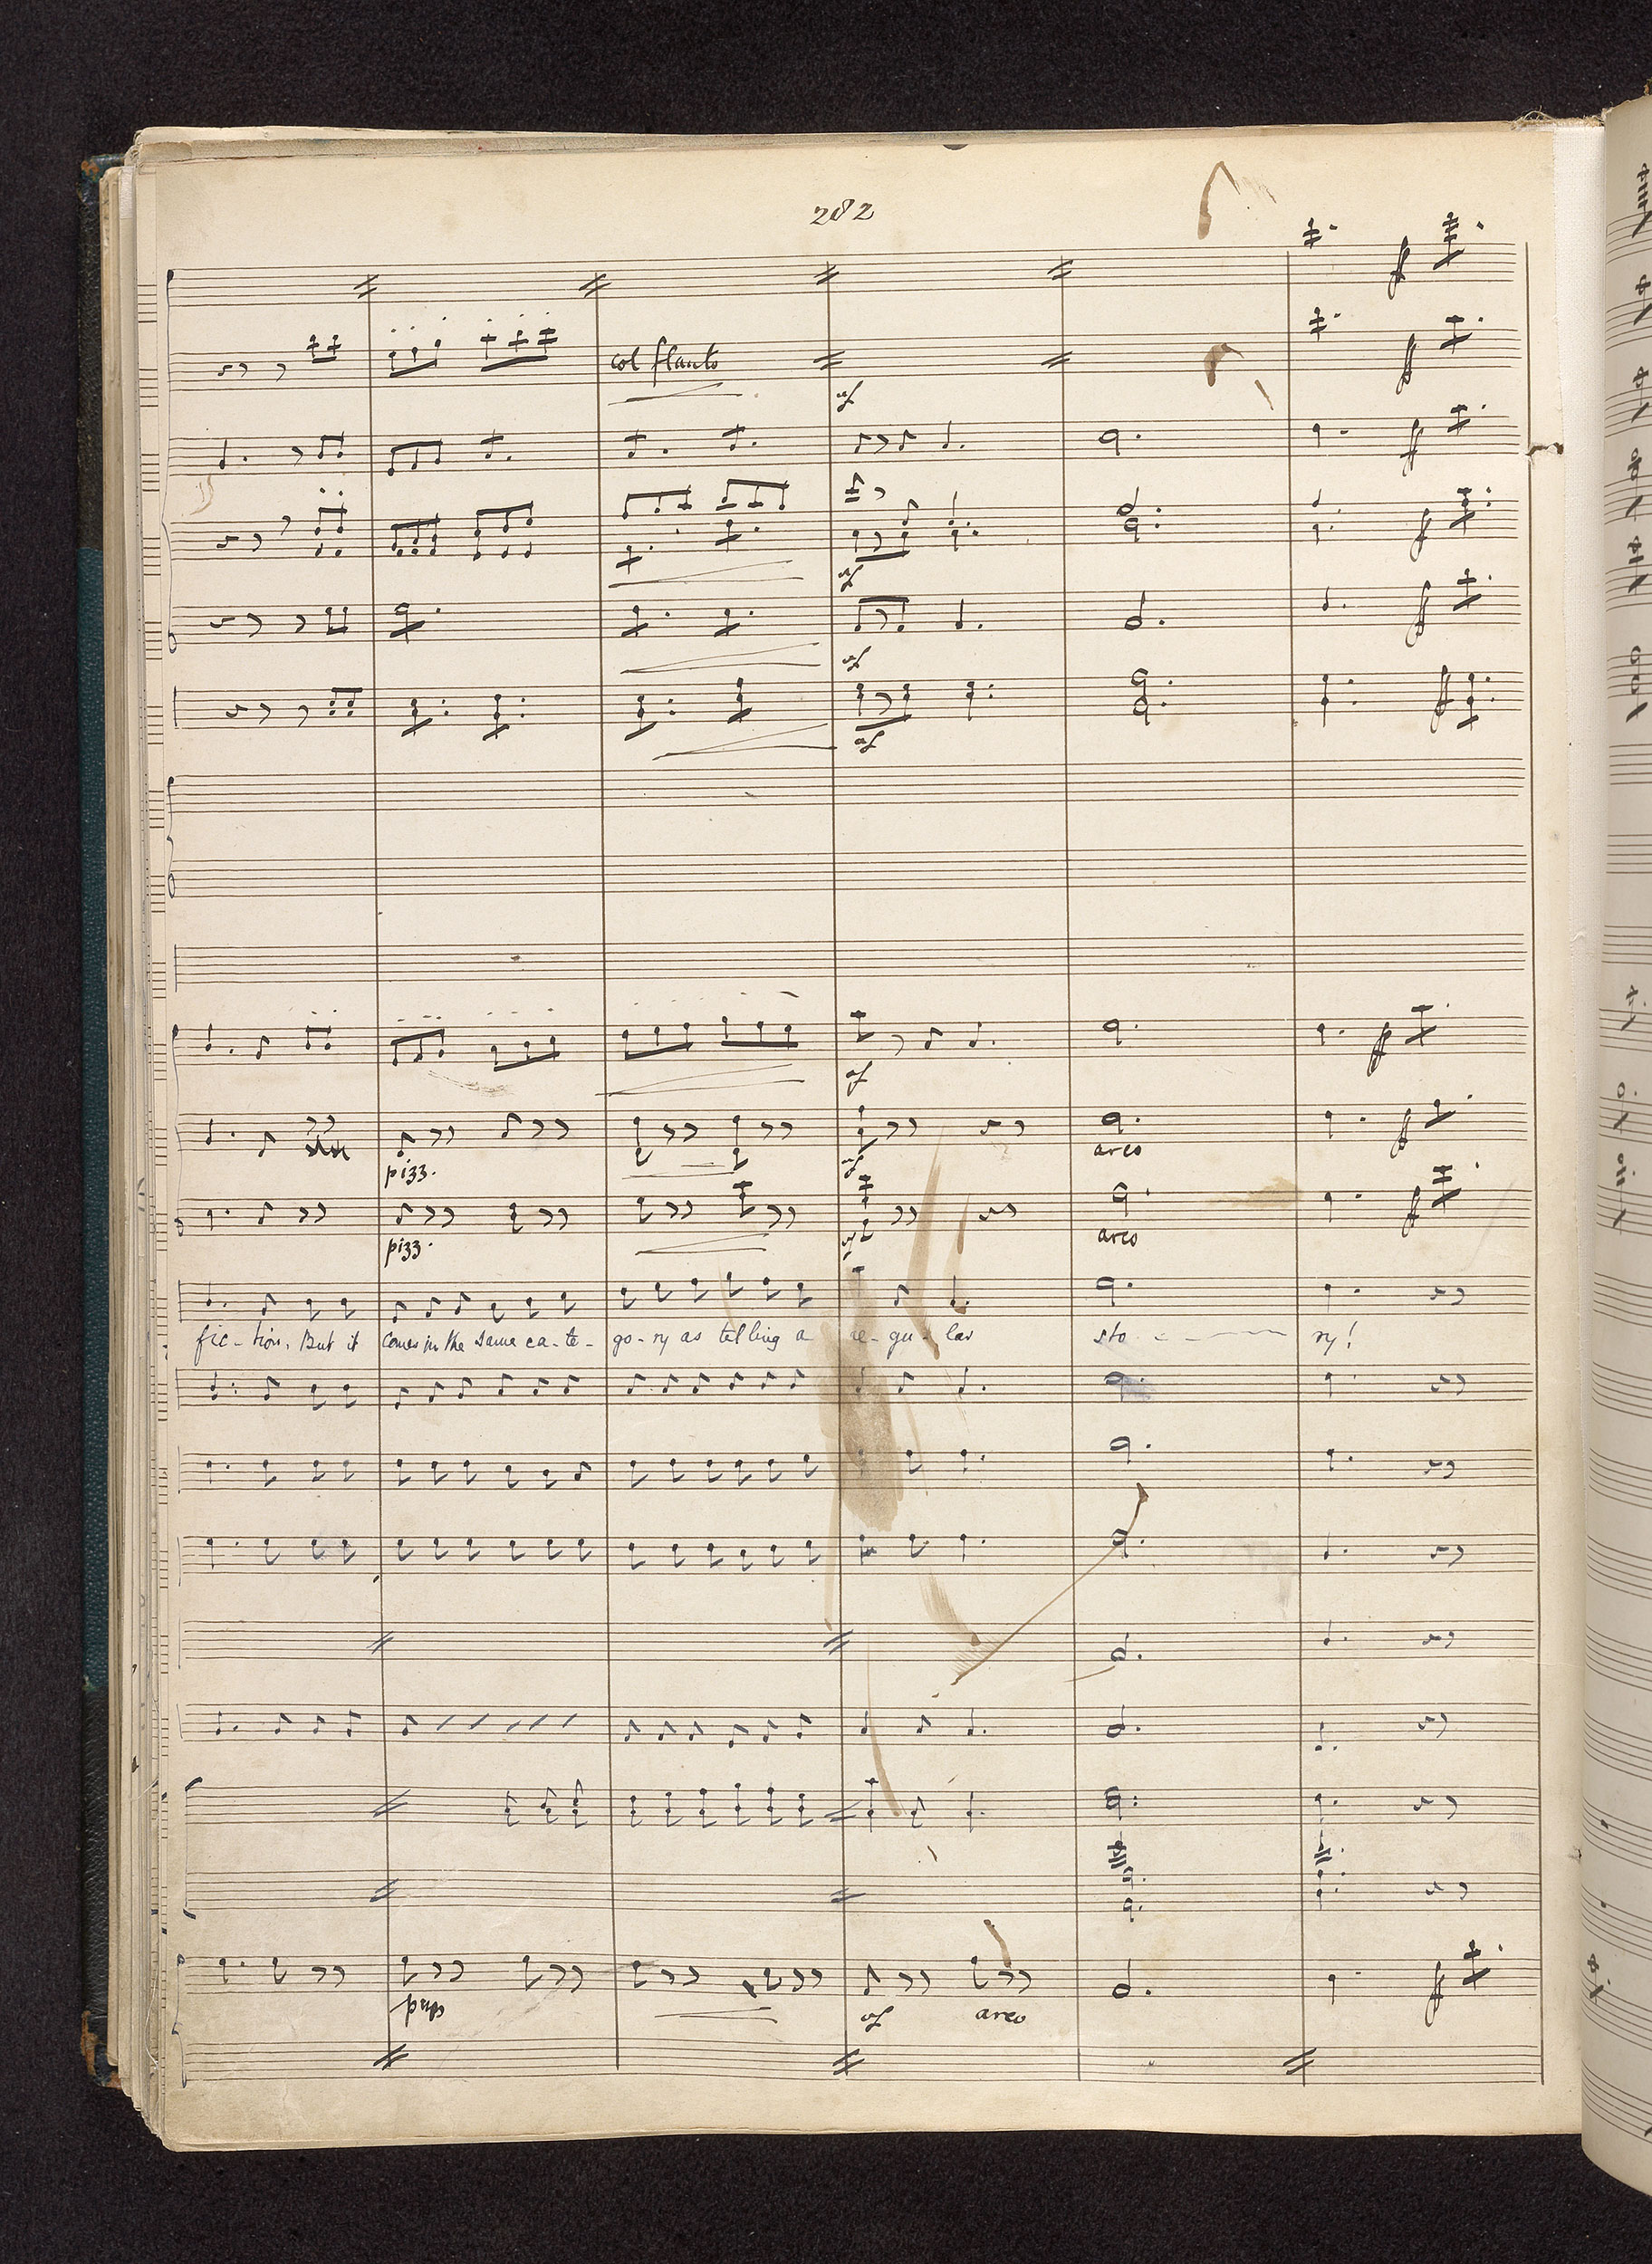 282
col flauto
sf
sf
sf
sf
sf
pizz.
sf
arco
pizz.
sf
arco
fic - tion. But it comes in the same ca - te - go - ry as telling a re - gu - lar sto - ry!
sf
arco